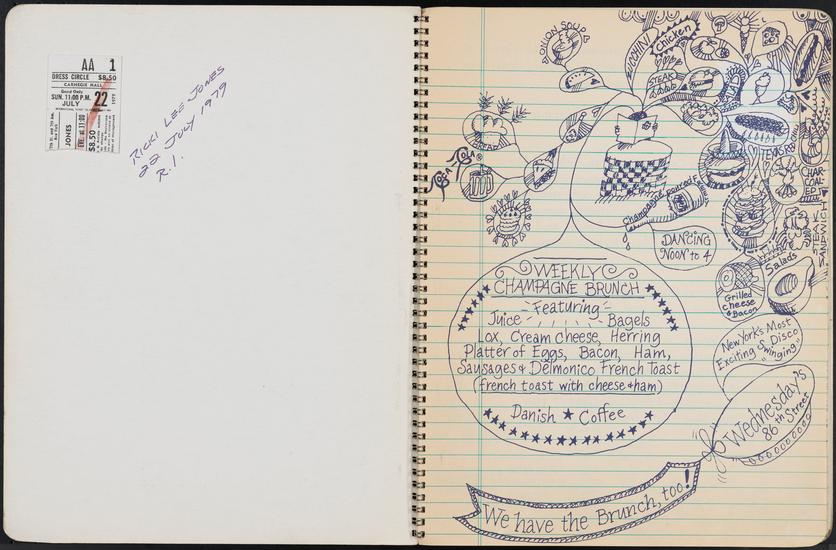 AA 1
DRESS CIRCLE $8.50
CARNEGIE HALL
Good Only
SUN. 11:00 P.M.
JULY 22
1979
7th St. and 7th Ave.
JONES
EVE. at 11:00
$8.50
RICKI LEE JONES
22 JULY 1979
R.I.
ONION SOUP
ZUCCHINI
Chicken
STEAK
BREAD
COCA-COLA
Champagne
DANCING
NOON to 4
TEXAS
CHAR-
COAL-
ED
STEAK
SANDWICH
Salads
Grilled
cheese
& Bacon
WEEKLY
CHAMPAGNE BRUNCH
Featuring
Juice Bagels
Lox, Cream cheese, Herring
Platter of Eggs, Bacon, Ham,
Sausages & Delmonico French Toast
(french toast with cheese & ham)
Danish ★ Coffee
New York's Most
Exciting Disco
"Swinging"
Wednesday's
86th Street
We have the Brunch, too!